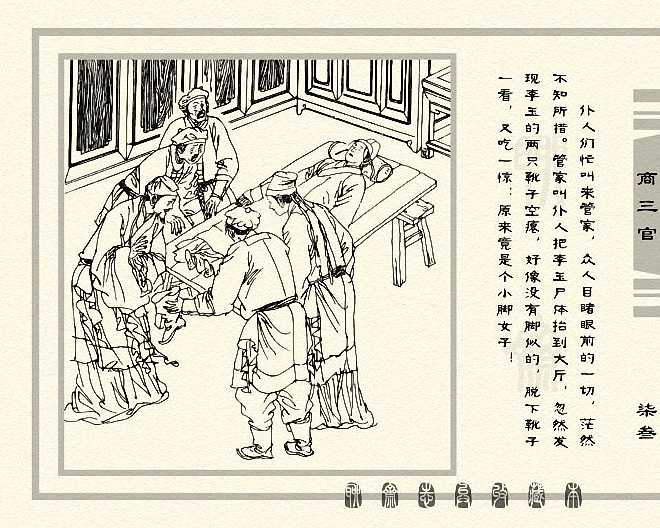 仆人们忙叫来管家，众人目睹眼前的一切，茫然
不知所措。管家叫仆人把李玉尸体抬到大厅，忽然发
现李玉的两只靴子空瘪，好像没有脚似的，脱下靴子
一看，又吃一惊：原来竟是个小脚女子！
商三官
柒叁
聊斋志异收藏本